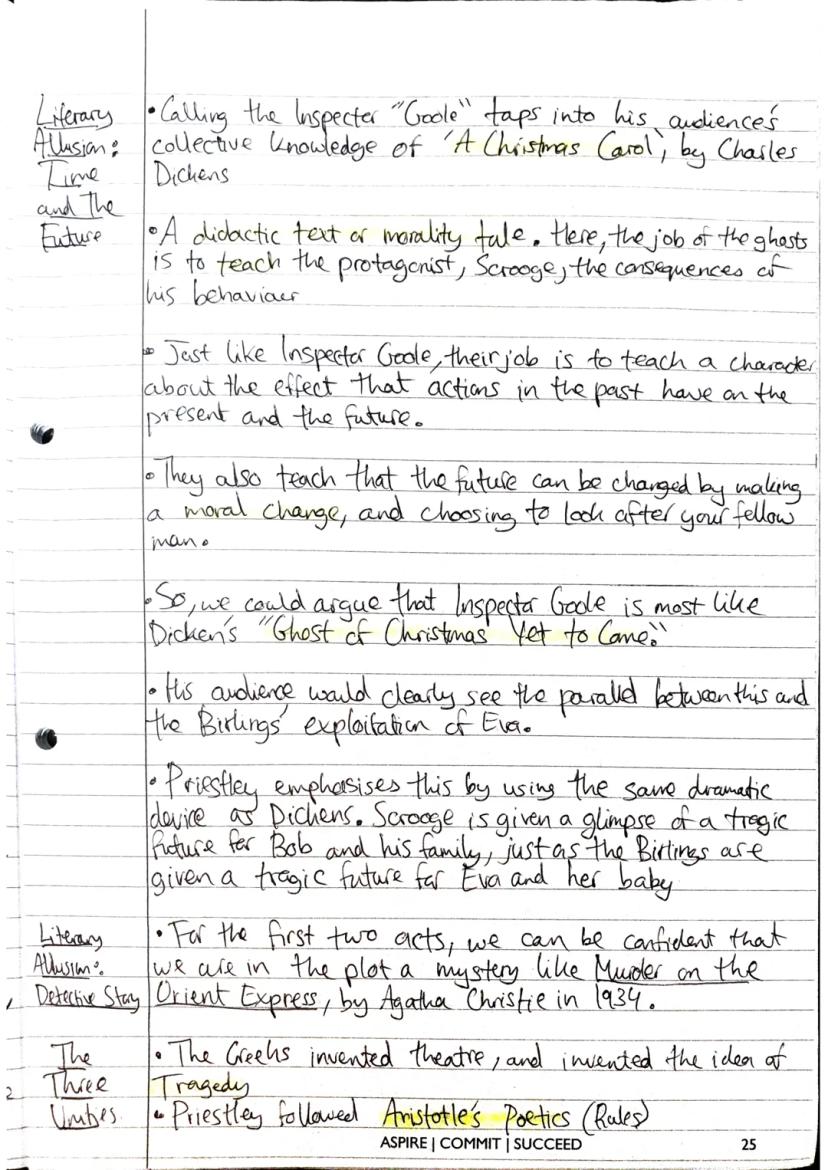 Literary
Allusion:
Time
and The
Future
• Calling the Inspector "Goole" taps into his audience's
collective knowledge of 'A Christmas Carol', by Charles
Dickens
• A didactic text or morality tale. Here, the job of the ghosts
is to teach the protagonist, Scrooge, the consequences of
his behaviour
• Just like Inspector Goole, their job is to teach a character
about the effect that actions in the past have on the
present and the future.
• They also teach that the future can be changed by making
a moral change, and choosing to look after your fellow
man.
• So, we could argue that Inspector Goole is most like
Dicken's "Ghost of Christmas Yet to Come."
• His audience would clearly see the parallel between this and
the Birlings' exploitation of Eva.
• Priestley emphasises this by using the same dramatic
device as Dickens. Scrooge is given a glimpse of a tragic
future for Bob and his family, just as the Birlings are
given a tragic future for Eva and her baby
Literary
Allusion:
Detective Story
• For the first two acts, we can be confident that
we are in the plot a mystery like Murder on the
Orient Express, by Agatha Christie in 1934.
The
Three
Unities.
• The Greeks invented theatre, and invented the idea of
Tragedy
• Priestley followed Aristotle's Poetics (Rules)
ASPIRE | COMMIT | SUCCEED 25